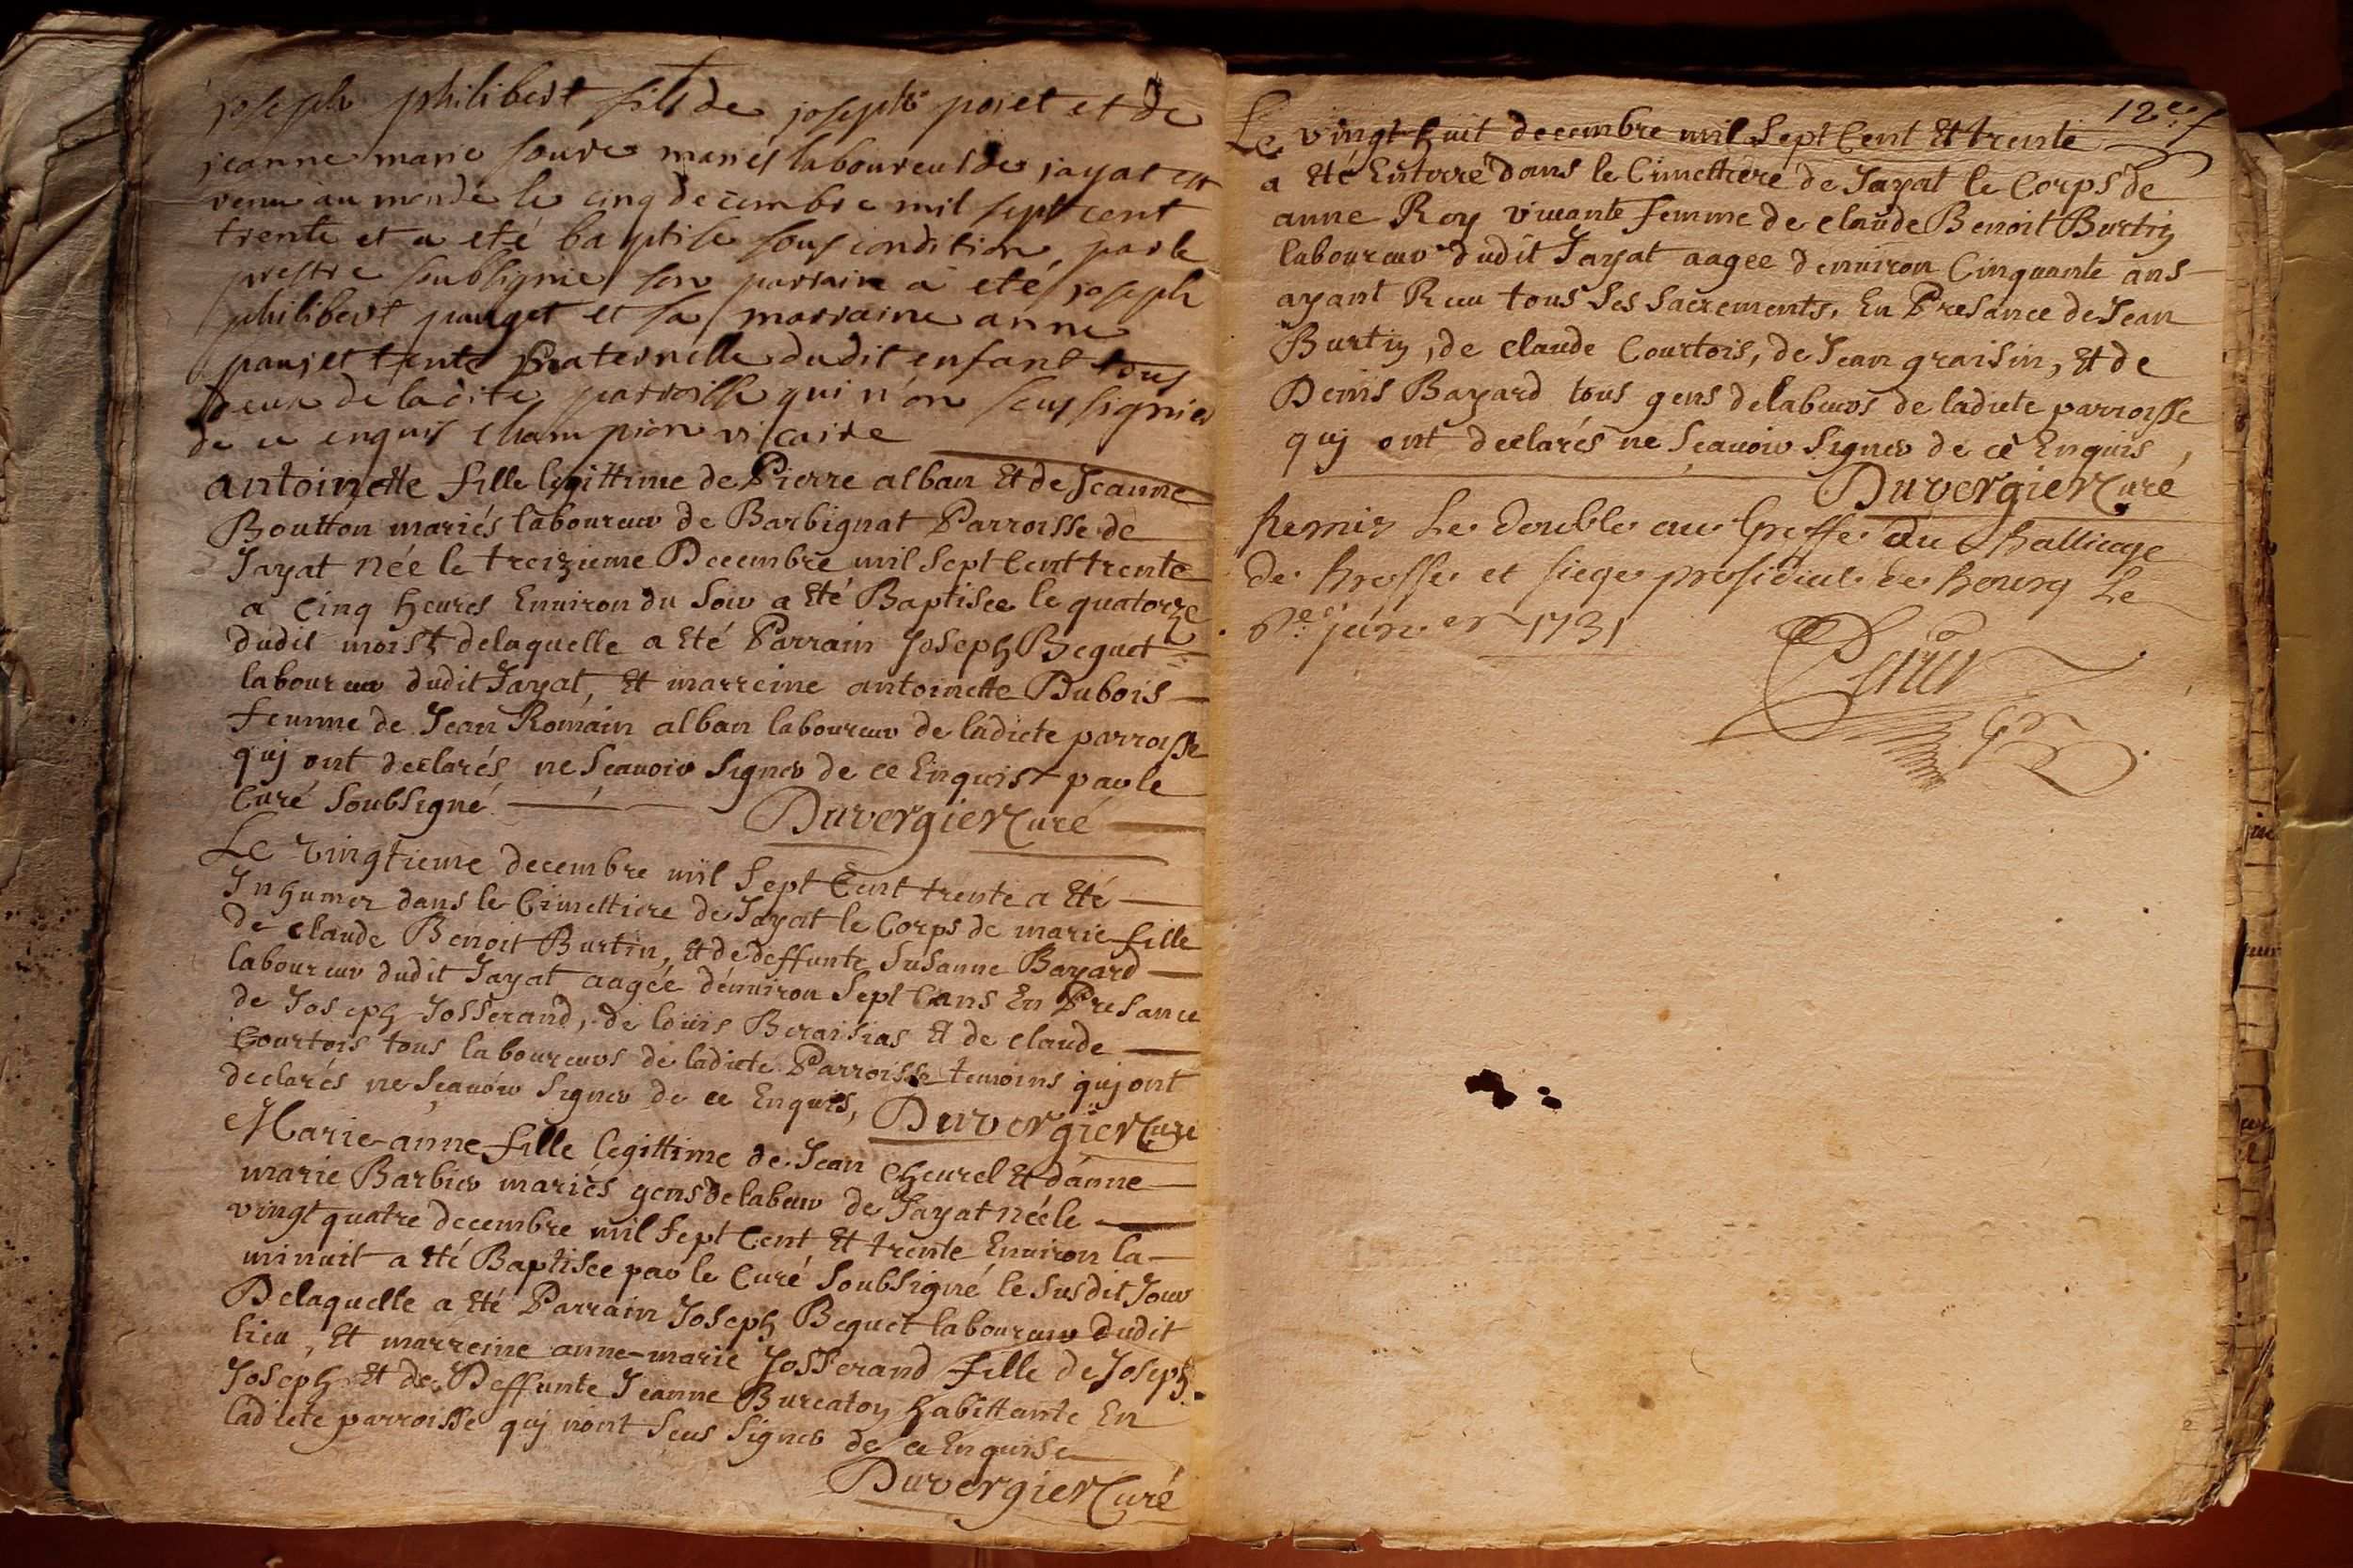 joseph philibert fils de joseph poiet et de
jeanne marie soure mariés laboureurs de jayat est
venu au monde le cinq decembre mil sept cent
trente et a eté baptise sous condition par le
prestre soubsigné son parrain a eté joseph
philibert pauget et sa marraine anne
paujet tente paternelle dudit enfant tous
deux de la dite parroisse qui n'on seus signier
de ce enquis Champion vicaire
antoinette fille legittime de Pierre alban Et de Jeanne
Boutton mariés laboureur de Barbignat Parroisse de
Jayat née le treizieme Decembre mil sept Cent trente
a Cinq heures Enuiron du soir a Eté Baptisee le quatorze
dudit mois delaquelle a Eté Parrain Joseph Beguet
laboureur dudit Jayat, Et marreine antoinette Dubois
femme de Jean Romain alban laboureur de ladicte parroisse
quj ont declarés ne sçauoir signer de ce Enquis par le
Curé soubsigné Duvergier Curé
Le vingtieme decembre mil sept Cent trente a Eté
Inhumer dans le Cimettiere de Jayat le Corps de marie fille
de claude Benoit Burtin, Et de deffunte Susanne Bayard
laboureur dudit Jayat aagée d'enuiron sept ans En Presance
de Joseph Josserand, de loüis Beraisias Et de claude
Courtois tous laboureurs de ladicte Parroisse temoins quj ont
declarés ne sçauoir signer de ce Enquis, Duvergier Curé
Marie-anne fille legittime de Jean Cheurel Et d'anne
marie Barbier mariés gens de labeur de Jayat née le
vingt quatre decembre mil sept Cent Et trente Enuiron la
minuit a Eté Baptisée par le Curé soubsigné le susdit Jour
Delaquelle a Eté Parrain Joseph Beguet laboureur dudit
lieu, Et marreine anne-marie Josserand fille de Joseph
Joseph Et de Deffunte Jeanne Bureaton habittante En
ladicte parroisse quj n'ont seus signer de ce Enquis
Duvergier Curé
12e
Le vingt huit decembre mil sept Cent Et trente
a Eté Enterré dans le Cimettiere de Jayat le Corps de
anne Roy viuante femme de claude Benoit Burtin
laboureur dudit Jayat aagee d'enuiron Cinquante ans
ayant Reeu tous ses sacrements, En Presance de Jean
Burtin, de claude Courtois, de Jean graisin, Et de
Denis Bayard tous gens de labeurs de ladicte parroisse
quj ont declarés ne sçauoir signer de ce Enquis,
Duvergier Curé
Remis Le double au Greffe du Balliage
de Bresse et siege presidial de bourg Le
janvier 1731